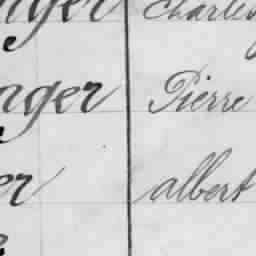 nger Charles
e
nger Pierre
er albert